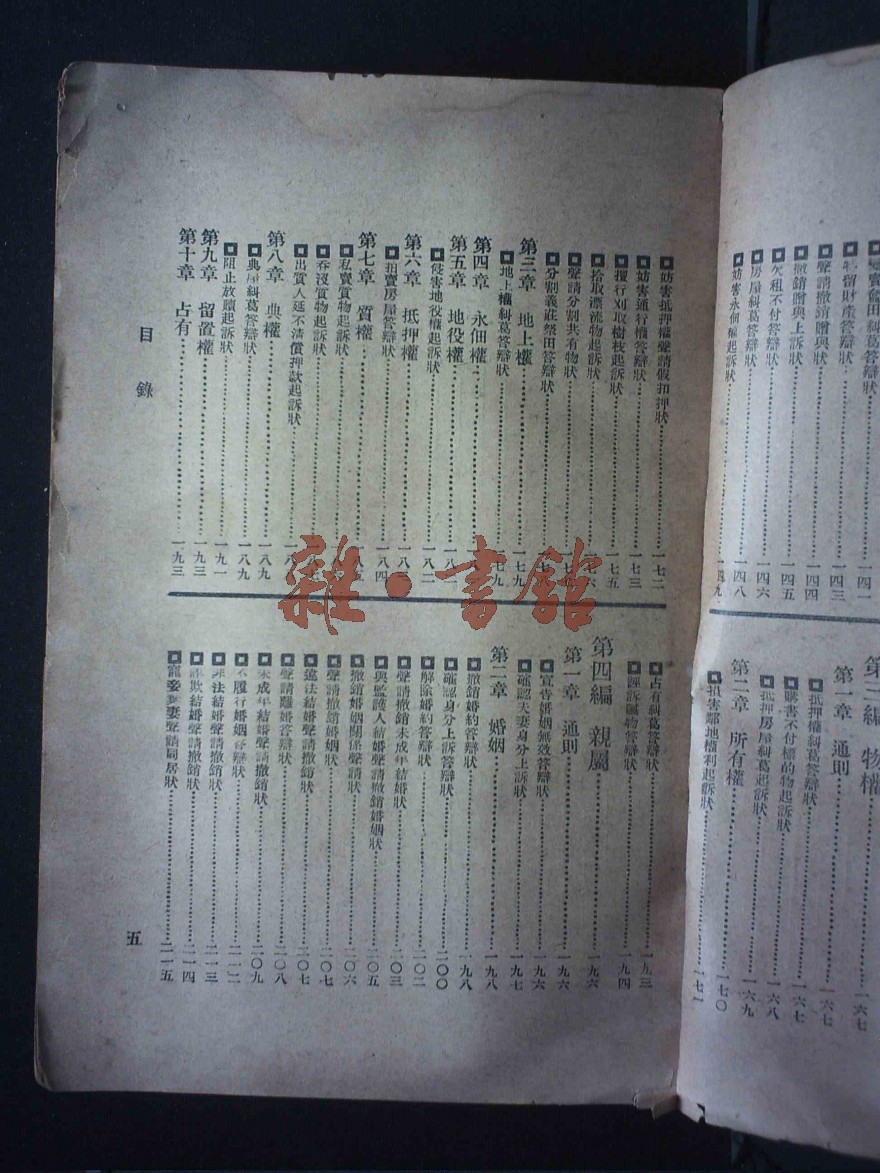 變賣
留財產答辯狀
聲請撤銷贈與狀
撤銷贈與上訴狀
欠租不付答辯狀
房屋糾葛答辯狀
妨害永佃權起訴狀
第三編 物權……一六七
第一章 通則……一六七
抵押權糾葛答辯狀……一六七
購書不付標的物起訴狀……一六七
抵押房屋糾葛起訴狀……一六八
第二章 所有權……一六九
損害鄰地權利起訴狀……一七一
妨害抵押權聲請假扣押狀……一七二
妨害通行權答辯狀……一七三
擅行刈取樹枝起訴狀……一七五
拾取漂流物起訴狀……一七六
聲請分割共有物狀
分割義莊祭田答辯狀
第三章 地上權……一七九
地上權糾葛答辯狀……一七九
第四章 永佃權
第五章 地役權
侵害地役權起訴狀……一八二
第六章 抵押權……一八三
拍賣房屋答辯狀……一八四
第七章 質權
私賣質物起訴狀
吞沒質物起訴狀
出質人延不清償押款起訴狀
第八章 典權……一八九
典屋糾葛答辯狀……一八九
阻止放贖起訴狀……一九一
第九章 留置權……一九三
第十章 占有……一九三
占有糾葛答辯狀……一九三
誣訴竊物答辯狀……一九四
第四編 親屬……一九六
第一章 通則……一九六
宣告婚姻無效答辯狀……一九六
確認夫妻身分上訴狀……一九七
第二章 婚姻……一九八
撤銷婚約答辯狀……一九八
確認身分上訴答辯狀……二〇〇
解除婚約答辯狀……二〇二
聲請撤銷未成年結婚狀……二〇三
與監護人結婚聲請撤銷婚姻狀……二〇五
撤銷婚姻關係聲請狀……二〇六
聲請撤銷婚姻狀……二〇七
違法結婚聲請撤銷狀……二〇七
聲請離婚答辯狀……二〇八
未成年結婚聲請撤銷狀……二〇九
不履行婚姻答辯狀……二一二
非法結婚聲請撤銷狀……二一三
詐欺結婚聲請撤銷狀……二一四
寵妾棄妻聲請同居狀……二一五
目錄
五
雜·書館